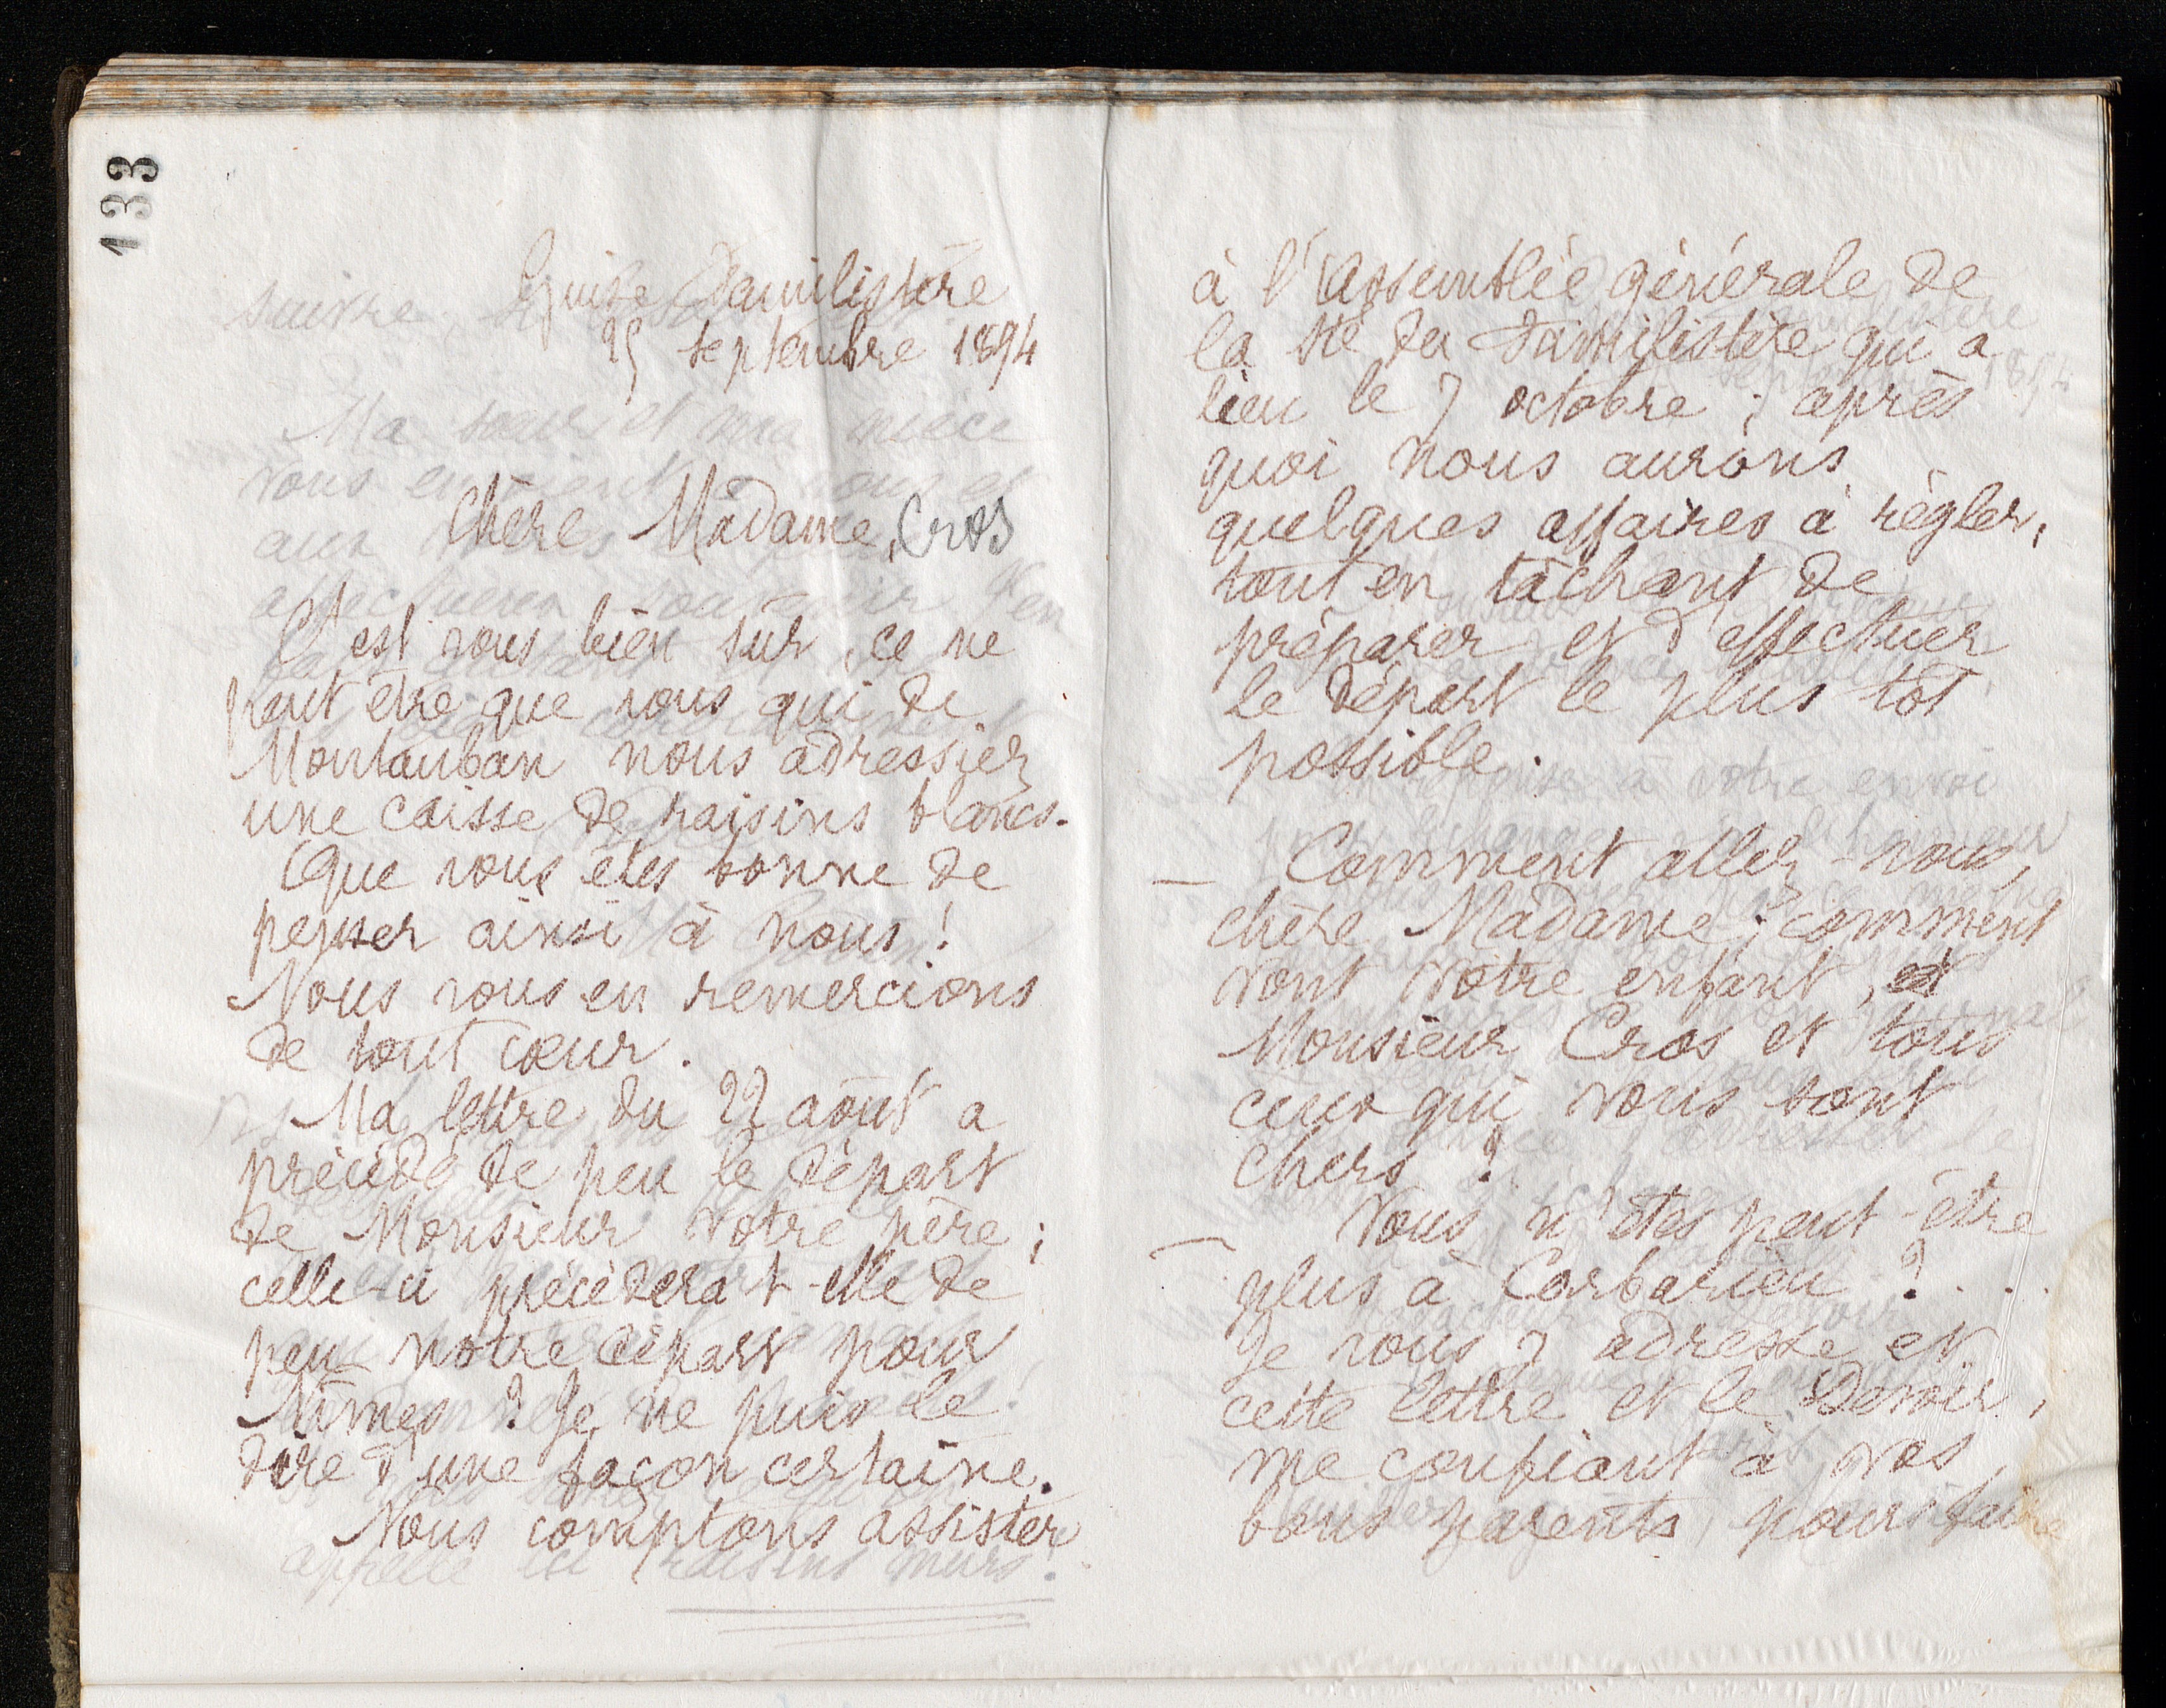 133
Guise Familistère
25 septembre 1894
Chère Madame, Cros
C'est vous bien sûr, ce ne
peut être que vous qui de
Montauban nous adressiez
une caisse de raisins blancs.
Que vous êtes bonne de
penser ainsi à nous !
Nous vous en remercions
de tout cœur.
Ma lettre du 22 août a
précédé de peu le départ
de Monsieur votre père ;
celle-ci précèdera-t-elle de
peu notre départ pour
Nîmes ? Je ne puis le
dire d'une façon certaine.
Nous comptons assister
à l'Assemblée générale de
la Sté du Familistère qui a
lieu le 7 octobre ; après
quoi nous aurons
quelques affaires à régler,
tout en tâchant de
préparer et d'effectuer
le départ le plus tôt
possible.
— Comment allez-vous,
chère Madame ; comment
vont votre enfant, et
Monsieur Cros et tous
ceux qui vous sont
chers ?
— Vous n'êtes peut-être
plus à Corbarieu ? . . .
Je vous y adresse et
cette lettre et le Devoir,
me confiant à vos
bons parents pour faire